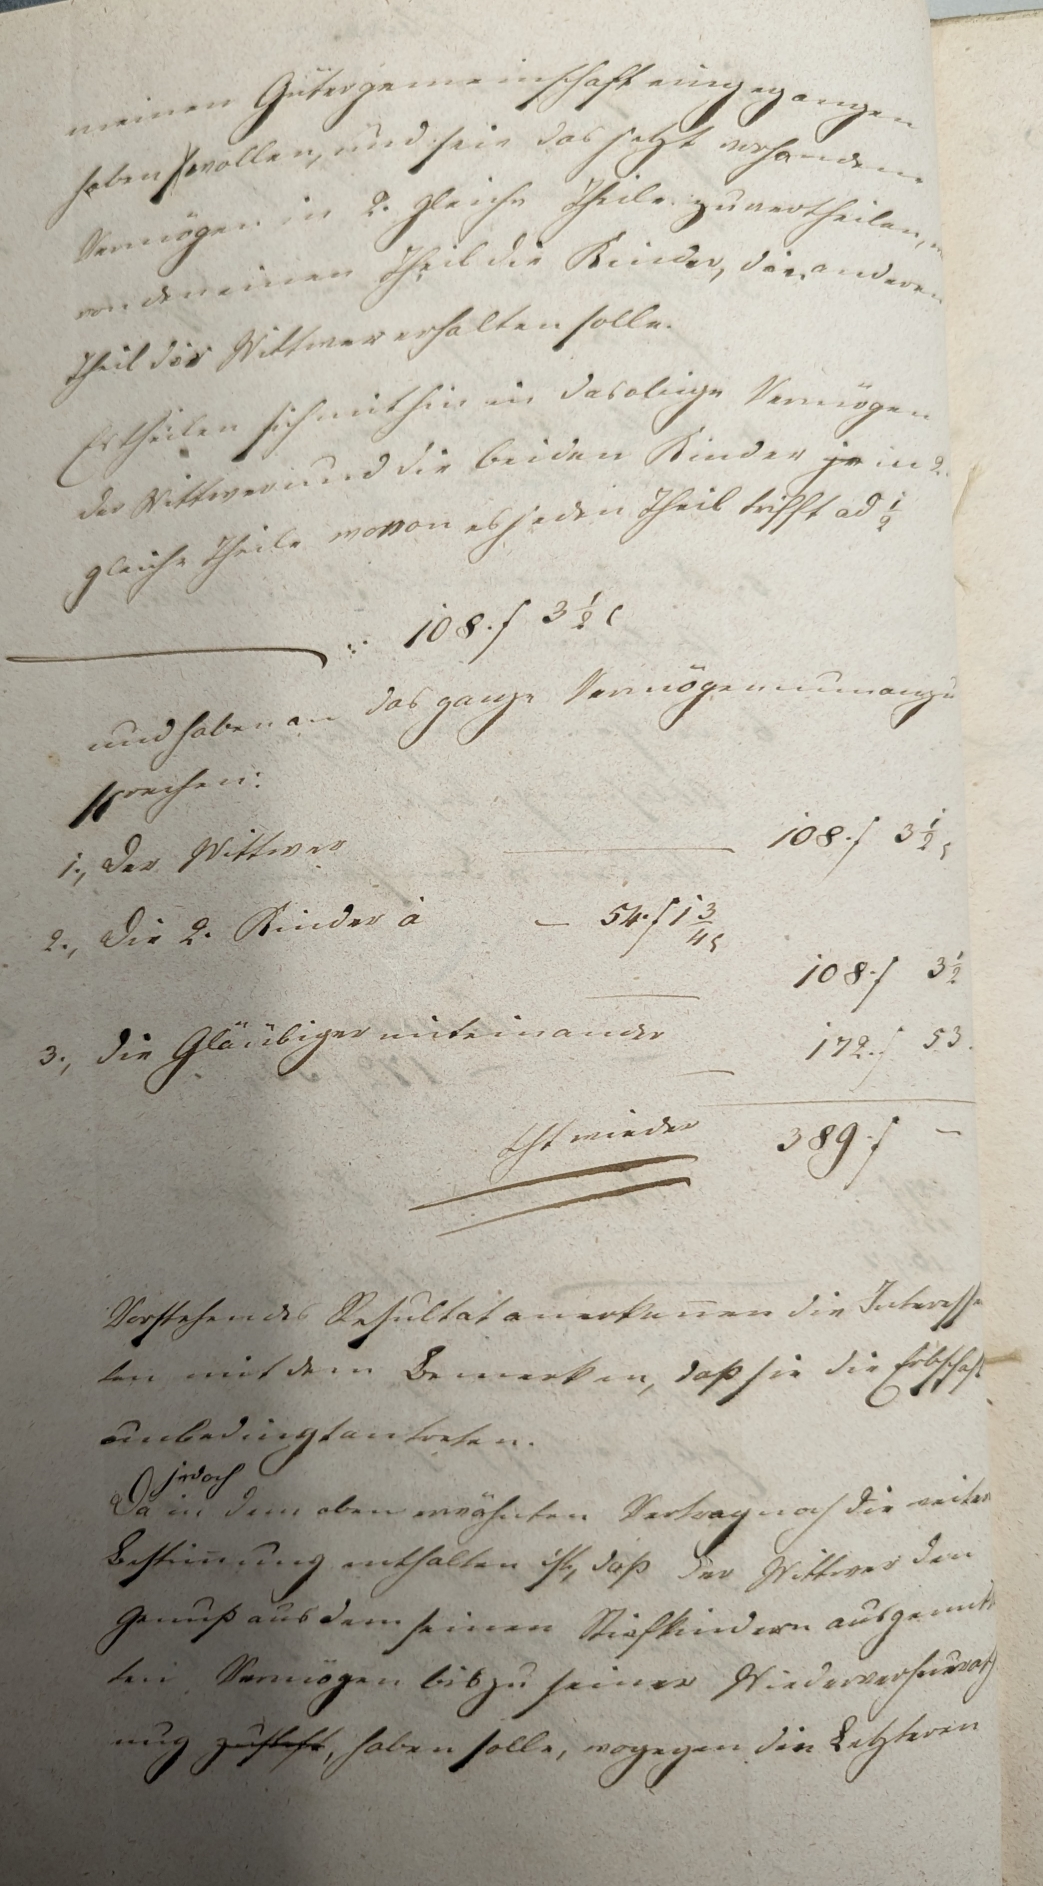 meinen Gütergemeinschaft eingegangen
haben wollen, und seie das jetzt vorhandene
Vermögen in 2. gleiche Theile zu vertheilen,
von denen einen Theil die Kinder, den anderen
Theil der Wittwer erhalten solle.
Es theilen sich mithin in das obige Vermögen
der Wittwer und die beiden Kinder je in 2.
gleiche Theile wovon es jeden Theil trifft ad 1/2
108. f 3 1/2 x
und haben an das ganze Vermögen nun anzu
sprechen:
1., Der Wittwer — 108. f 3 1/2 x
2., Die 2. Kinder à — 54. f 1 3/4 x
108. f 3 1/2
3., die Gläubiger miteinander — 172. f 53.
thut wieder 389. f —
Vorstehendes Resultat anerkennen die Interesse
ten mit dem Bemerken, daß sie die Erbschaft
unbedingt antreten.
jedoch
Da in dem oben erwähnten Vertrag noch die weitere
Bestimmung enthalten ist, daß der Wittwer den
Genuß aus dem seinen Stiefkindern ausgemitt
ten Vermögen bis zu seiner Wiederverheurath
ung zusteht, haben solle, wogegen die Letzteren